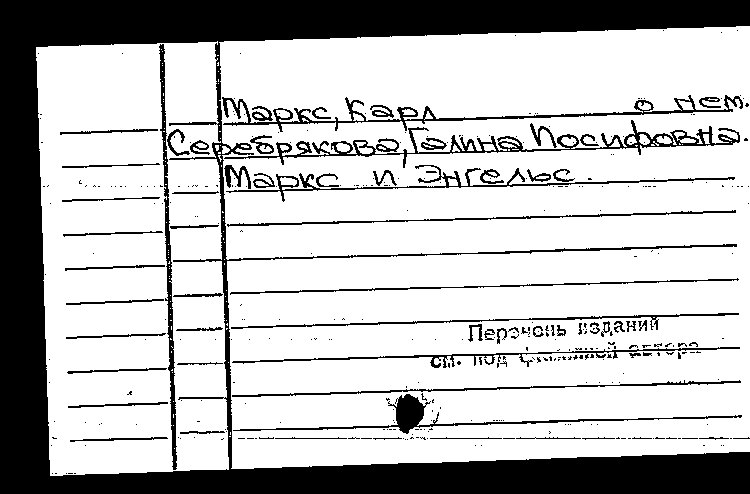 Маркс, Карл о нем.
Серебрякова, Галина Иосифовна.
Маркс и Энгельс.
Перечень изданий
см. под фамилией автора